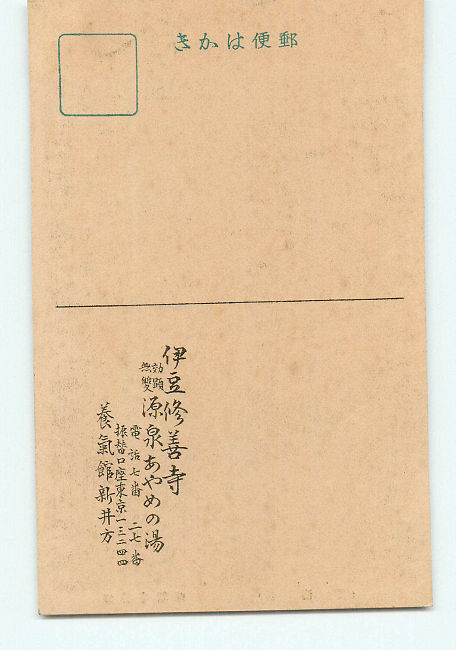 きかは便郵
伊豆修善寺
効顕
無雙
源泉あやめの湯
電話七番 二七番
振替口座東京一三二四四
養氣館新井方